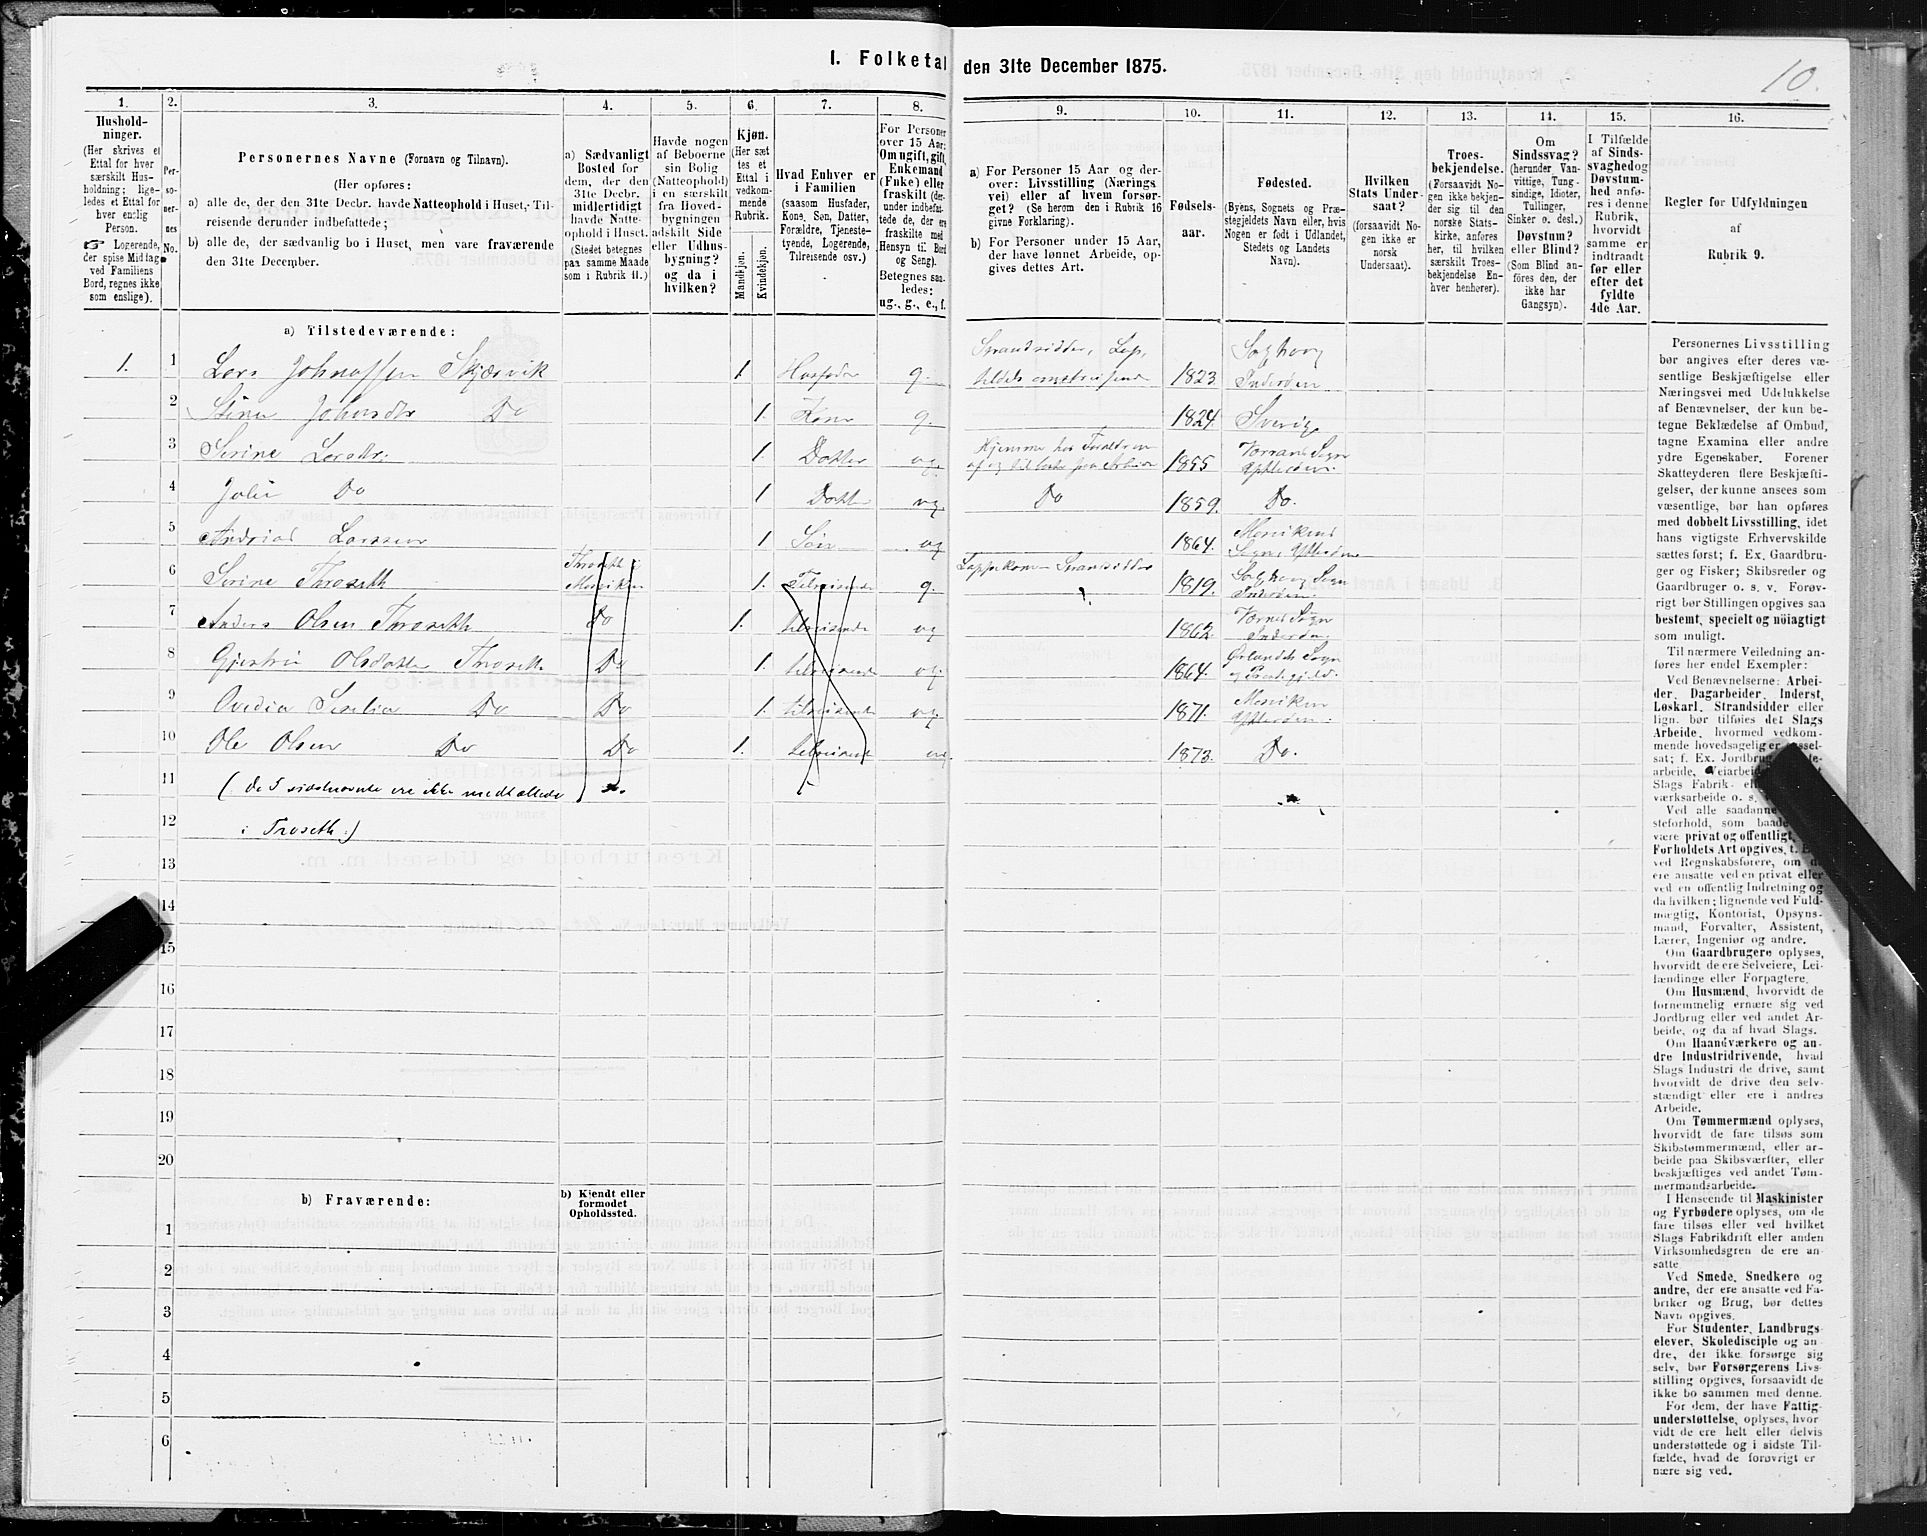 I. Folketal den 31te December 1875.
10.
1.
Hushold-
ninger.
(Her skrives et
Ettal for hver
særskilt Hus-
holdning; lige-
ledes et Ettal for
hver enslig
Person.
Logerende,
der spise Middag
ved Familiens
Bord, regnes ikke
som enslige).
2.
Per-
so-
ner-
nes
No.
3.
Personernes Navne (Fornavn og Tilnavn).
(Her opføres:
a) alle de, der den 31te Decbr. havde Natteophold i Huset, Til-
reisende derunder indbefattede;
b) alle de, der sædvanlig bo i Huset, men vare fraværende
den 31te December.
4.
a) Sædvanligt
Bosted for
dem, der den
31te Decbr.
midlertidigt
havde Natte-
ophold i Huset.
(Stedet betegnes
paa samme Maade
som i Rubrik 11.)
5.
Havde nogen
af Beboerne
sin Bolig
(Natteophold)
i en særskilt
fra Hoved-
bygningen
adskilt Side
eller Udhus-
bygning?
og da i
hvilken?
6.
Kjøn.
(Her sæt
tes et
Ettal i
vedkom-
mende
Rubrik.
Mandkjøn.
Kvindekjøn.
7.
Hvad Enhver er
i Familien
(saasom Husfader,
Kone, Søn, Datter,
Forældre, Tjeneste-
tyende, Logerende,
Tilreisende osv.)
8.
For Personer
over 15 Aar:
Om ugift, gift,
Enkemand
(Enke) eller
fraskilt (der-
under indbefat-
tede de, der ere
fraskilte med
Hensyn til Bord
og Seng).
Betegnes saa-
ledes:
ug., g., e., f.
9.
a) For Personer 15 Aar og der-
over: Livsstilling (Nærings
vei) eller af hvem forsør-
get? (Se herom den i Rubrik 16
givne Forklaring).
b) For Personer under 15 Aar,
der have lønnet Arbeide, op-
gives dettes Art.
10.
Fødsels-
aar.
11.
Fødested.
(Byens, Sognets og Præ-
stegjeldets Navn eller, hvis
Nogen er født i Udlandet,
Stedets og Landets
Navn).
12.
Hvilken
Stats Under-
saat?
(forsaavidt No-
gen ikke er
norsk
Undersaat).
13.
Troes-
bekjendelse.
(Forsaavidt No-
gen ikke bekjen-
der sig til den
norske Stats-
kirke, anføres
her, til hvilken
særskilt Troes-
bekjendelse En-
hver henhører).
14.
Om
Sindssvag?
(herunder Van-
vittige, Tung-
sindige, Idioter,
Tullinger,
Sinker o. desl.)
Døvstum?
eller Blind?
(Som Blind an-
føres den, der
ikke har
Gangsyn).
15.
I Tilfælde
af Sinds-
svaghed og
Døvstum-
hed anfø-
res i denne
Rubrik,
hvorvidt
samme er
indtraadt
før eller
efter det
fyldte
4de Aar.
16.
Regler for Udfyldningen
af
Rubrik 9.
a) Tilstedeværende:
1. 1 Lars Johnassen Skjærvik 1 Husfader g. Strandsidder, Lap, 1823 Inderøen
2 Stina Do 1. Kone g. 1824. Sverig
3 Serine Larsdtr. 1 Datter ug. 1855 Sogn
4 Do 1 Datter ug. Do 1859. Do.
5 Larssen 1 Søn ug 1864. Sogn Ytterøen
6 Serine Throseth Throseth i 1. Tilreisende g. Strandsidder 1819. Sogn Inderøen.
7 Anders Olsen Throseth Do 1. tilreisende ug 1862. Sogn Inderøen.
8 Olsdatter Throseth Do 1. tilreisende ug. 1864. Ørlandets Sogn
9 Do Do 1. tilreisende ug. 1871. Ytterøen.
10 Ole Olsen Do Do 1. tilreisende ug 1873. Do.
11 (de 5 sidstnævnte ere ikke medtallede
12 i Troseth.)
13
14
15
16
17
18
19
20
b) Fraværende:
b) Kjendt eller
formodet
Opholdssted.
1
2
3
4
5
6
Personernes Livsstilling
bør angives efter deres væ-
sentlige Beskjæftigelse eller
Næringsvei med Udelukkelse
af Benævnelser, der kun be-
tegne Beklædelse af Ombud,
tagne Examina eller andre
ydre Egenskaber. Forener
Skatteyderen flere Beskjæfti-
gelser, der kunne ansees som
væsentlige, bør han opføres
med dobbelt Livsstilling, idet
hans vigtigste Erhvervskilde
sættes først; f. Ex. Gaardbru-
ger og Fisker; Skibsreder og
Gaardbruger o. s. v. Forøv-
rigt bør Stillingen opgives saa
bestemt, specielt og nøiagtigt
som muligt.
Til nærmere Veiledning an-
føres her endel Exempler:
Ved Benævnelserne: Arbei-
der, Dagarbeider, Inderst,
Løskarl, Strandsidder eller
lign. bør tilføies det Slags
Arbeide, hvormed vedkom-
mende hovedsagelig er
sat; f. Ex.
arbeide, Veiarbeide
Slags Fabrik-
værksarbeide o. s.
Ved alle saadanne
steforhold, som baade
være privat og offentligt,
Forholdets Art opgives, t.
ved Regnskabsførere, om
ere ansatte ved en privat eller
ved en offentlig Indretning og
da hvilken; lignende ved Fuld-
mægtig, Kontorist, Opsyns-
mand, Forvalter, Assistent,
Lærer, Ingeniør og andre.
Om Gaardbrugere oplyses,
hvorvidt de ere Selveiere, Lei-
lændinge eller Forpagtere.
Om Husmænd, hvorvidt de
fornemmelig ernære sig ved
Jordbrug eller ved andet Ar-
beide, og da af hvad Slags.
Om Haandværkere og an-
dre Industridrivende, hvad
Slags Industri de drive, samt
hvorvidt de drive den selv-
stændigt eller ere i andres
Arbeide.
Om Tømmermænd oplyses,
hvorvidt de fare tilsøs som
Skibstømmermænd, eller ar-
beide paa Skibsværfter, eller
beskjæftiges ved andet Tøm-
mermandsarbeide.
I Henseende til Maskinister
og Fyrbødere oplyses, om de
fare tilsøs eller ved hvilket
Slags Fabrikdrift eller anden
Virksomhedsgren de ere an-
satte.
Ved Smede, Snedkere og
andre, der ere ansatte ved Fa-
briker og Brug, bør dettes
Navn opgives.
For Studenter, Landbrugs-
elever, Skoledisciple og an-
dre, der ikke forsørge sig
selv, bør Forsørgerens Livs-
stilling opgives, forsaavidt de
ikke bo sammen med denne.
For dem, der have Fattig-
understøttelse, oplyses, hvor
vidt de ere helt eller delvis
understøttede og i sidste Til-
fælde, hvad de forøvrigt er
nære sig ved.